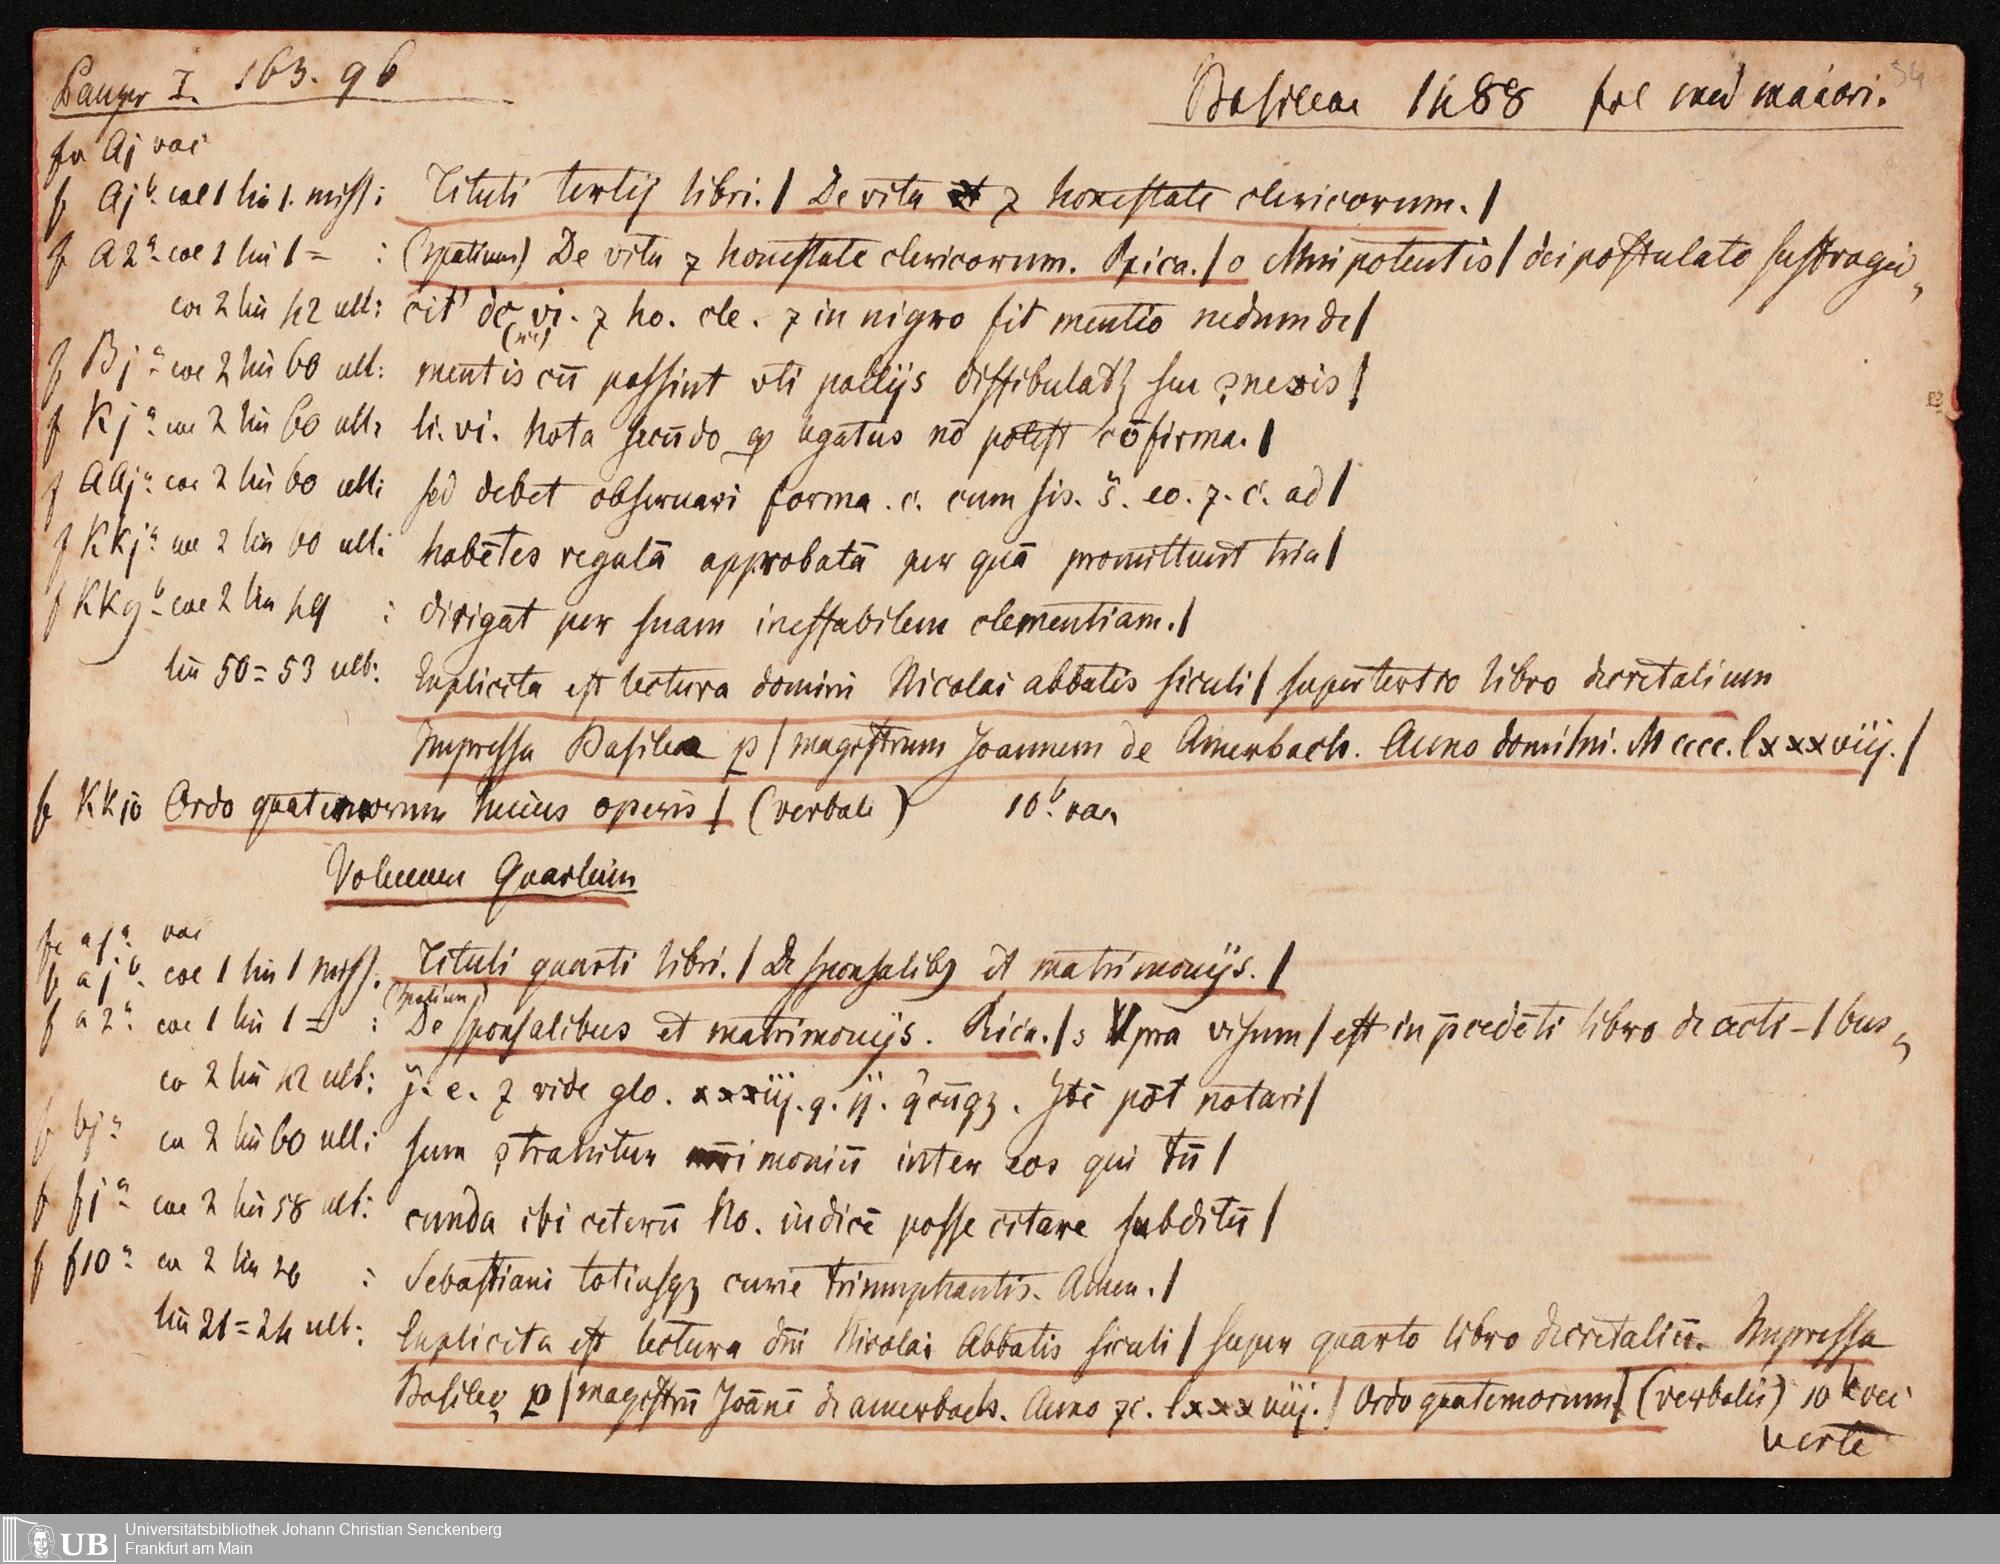 Panzer I. 163. 96
Basileae 1488 fol med maiori. 54
fo Aj vac
f Ajb. col 1 lin 1. miss: Tituli tertij libri. / De vita ⁊ honestate clericorum. /
f A2a col 1 lin 1 = : (spatium) De vita ⁊ honestate clericorum. Rrica. / o Mnipotentis / dei postulato suffragio
co 2 lin 42 ult: cit' de vi. ⁊ ho. cle. ⁊ in nigro fit mentio nedum de /
(sic)
f Bja col 2 lin 60 ult: mentis cū possint vti pallijs diffibulatꝫ seu ꝯnexis /
f Kja col 2 lin 60 ult: li. vi. Nota secūdo ꝙ legatus nō potest cōfirma. /
f AAja col 2 lin 60 ult: sed debet obseruari forma. c. cum sis. s̄. eo. ⁊. c. ad /
f KKja col 2 lin 60 ult: habētes regulā approbatā per quā promittunt tria /
f KK9b col 2 lin 49 : dirigat per suam ineffabilem clementiam. /
lin 50 = 53 ult: Explicita est lectura domini Nicolai abbatis siculi / super tertio libro decretalium
Impressa Basilee p / magistrum Joannem de Amerbach. Anno domi/ni. M cccc. lxxxviij. /
f KK10 Ordo quaternorum huius operis / (verbali) 10b. vac
Volumen Quartum
fo a1a. vac
f ajb. col 1 lin 1 miss. Tituli quarti libri. / De sponsalibꝫ et matrimonijs. /
(spatium)
f a2a. col 1 lin 1 = : De sponsalibus et matrimonijs. Rica. / s Vpra visum / est in p̄cedēti libro de acti - / bus
co 2 lin 42 ult: j. e. ⁊ vide glo. xxxij. q. ij. q̄cūqꝫ. Itē pōt notari /
f bja co 2 lin 60 ult: sum ꝯtrahitur mr̄imoniū inter eos qui tū /
f fja col 2 lin 58 ult: cunda ibi ceterū No. iudicē posse citare subditū /
f f10a co 2 lin 20 : Sebastiani totiusqꝫ curie triumphantis. Amen. /
lin 21 = 24 ult: Explicita est lectura dn̄i Nicolai Abbatis siculi / super quarto libro decretaliū. Impressa
Basileę p / magistrū Joānē de amerbach. Anno ⁊c. lxxxviij. / Ordo quaternorum / (verbalis) 10b vac
verte
Universitätsbibliothek Johann Christian Senckenberg
Frankfurt am Main
UB